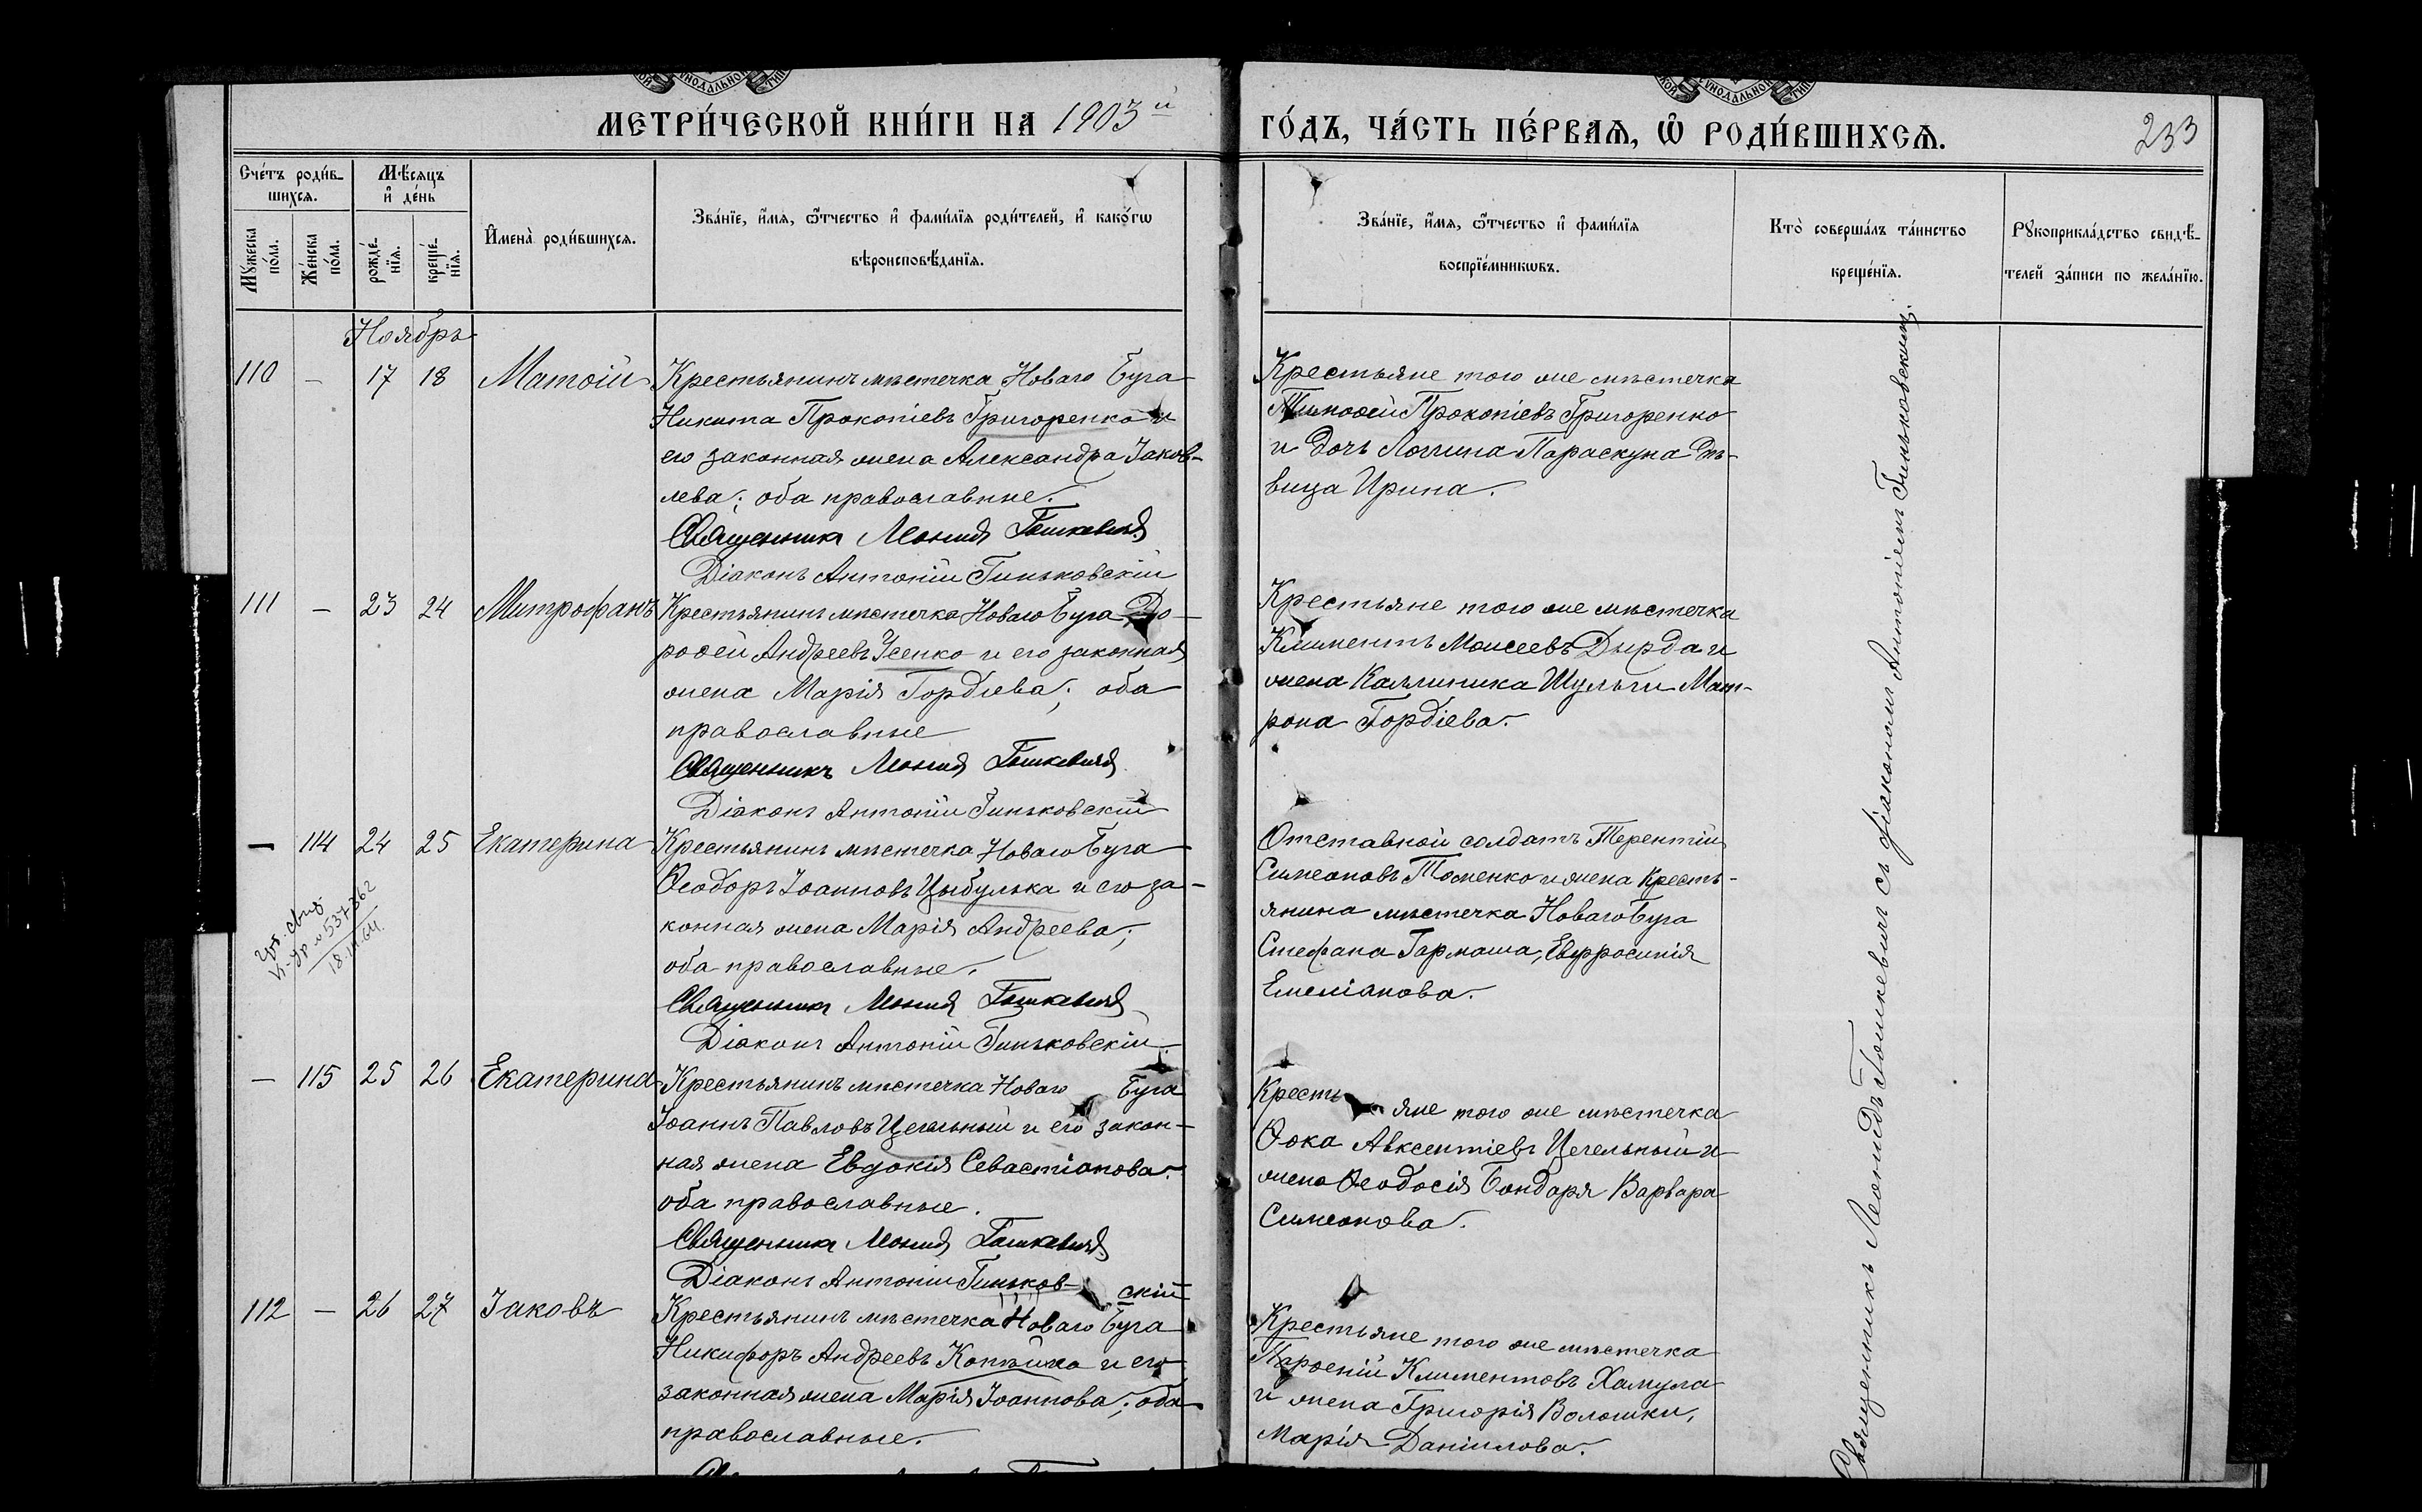 МЕТРИ́ЧЕСКОЙ КНИ́ГИ НА 1903й
ГО́ДЪ, ЧА́СТЬ ПЕ́РВАѦ, Ѡ҆ РОДИ́ВШИХСѦ.
233
Сче́тъ роди́в-
шихсѧ.
Мѣ́сѧцъ
и҆ де́нь
Мꙋ́жеска
по́ла.
Же́нска
по́ла.
рожде́-
нїѧ.
креще́-
нїѧ.
И҆мена̀ роди́вшихсѧ.
Зва́нїе, и҆́мѧ, ѻ҆́тчество и҆ фами́лїѧ роди́телей, и҆ како́гѡ
вѣроисповѣ́данїѧ.
Зва́нїе, и҆́мѧ, ѻ҆́тчество и҆ фами́лїѧ
воспрїе́мникѡвъ.
Кто̀ соверша́лъ та́инство
креще́нїѧ.
Рꙋкоприкла́дство свидѣ́-
телей за́писи по жела́нїю.
Ноябрь
110 — 17 18 Матѳій
Крестьянинъ мѣстечка Новаго Буга
Никита Прокопіевъ Григоренко и
его законная жена Александра Іаков-
лева; оба православные.
Священникъ Леонид Гошкевичъ
Діаконъ Антоній Гиньковскій
Крестьяне того же мѣстечка
Тимоѳей Прокопіевъ Григоренко
и дочь Логгина Параскуна дѣ-
вица Ирина.
111 — 23 24 Митрофанъ
Крестьянинъ мѣстечка Новаго Буга До-
роѳей Андреевъ Усенко и его законная
жена Марія Гордіева; оба
православные
Священникъ Леонид Гошкевичъ
Діаконъ Антоній Гиньковскій
Крестьяне того же мѣстечка
Климентъ Моисеевъ Дырда и
жена Каллиника Шульги Мат-
рона Гордіева.
— 114 24 25 Екатерина
№ 537362
18.11.64.
Крестьянинъ мѣстечка Новаго Буга
Ѳеодоръ Іоанновъ Цыбулька и его за-
конная жена Марія Андреева;
оба православные.
Священникъ Леонид Гошкевичъ
Діаконъ Антоній Гиньковскій
Отставной солдатъ Терентій
Симеоновъ Томенко и жена кресть-
янина мѣстечка Новаго Буга
Стефана Гармаша, Евфросинія
Емеліанова.
— 115 25 26 Екатерина
Крестьянинъ мѣстечка Новаго Буга
Іоаннъ Павловъ Цегельный и его закон-
ная жена Евдокія Севастіанова;
оба православные.
Священникъ Леонид Гошкевичъ
Діаконъ Антоній Гиньковскій
Крестьяне того же мѣстечка
Ѳока Авксентіевъ Цегельный и
жена Ѳеодосія Бондаря Варвара
Симеонова.
112 — 26 27 Іаковъ
Крестьянинъ мѣстечка Новаго Буга
Никифоръ Андреевъ Копѣйка и его
законная жена Марія Іоаннова; оба
православные.
Крестьяне того же мѣстечка
Парѳеній Климентовъ Хамула
и жена Григорія Волошки,
Марія Даніилова.
Священникъ Леонидъ Гошкевичъ съ діакономъ Антоніемъ Гиньковскимъ